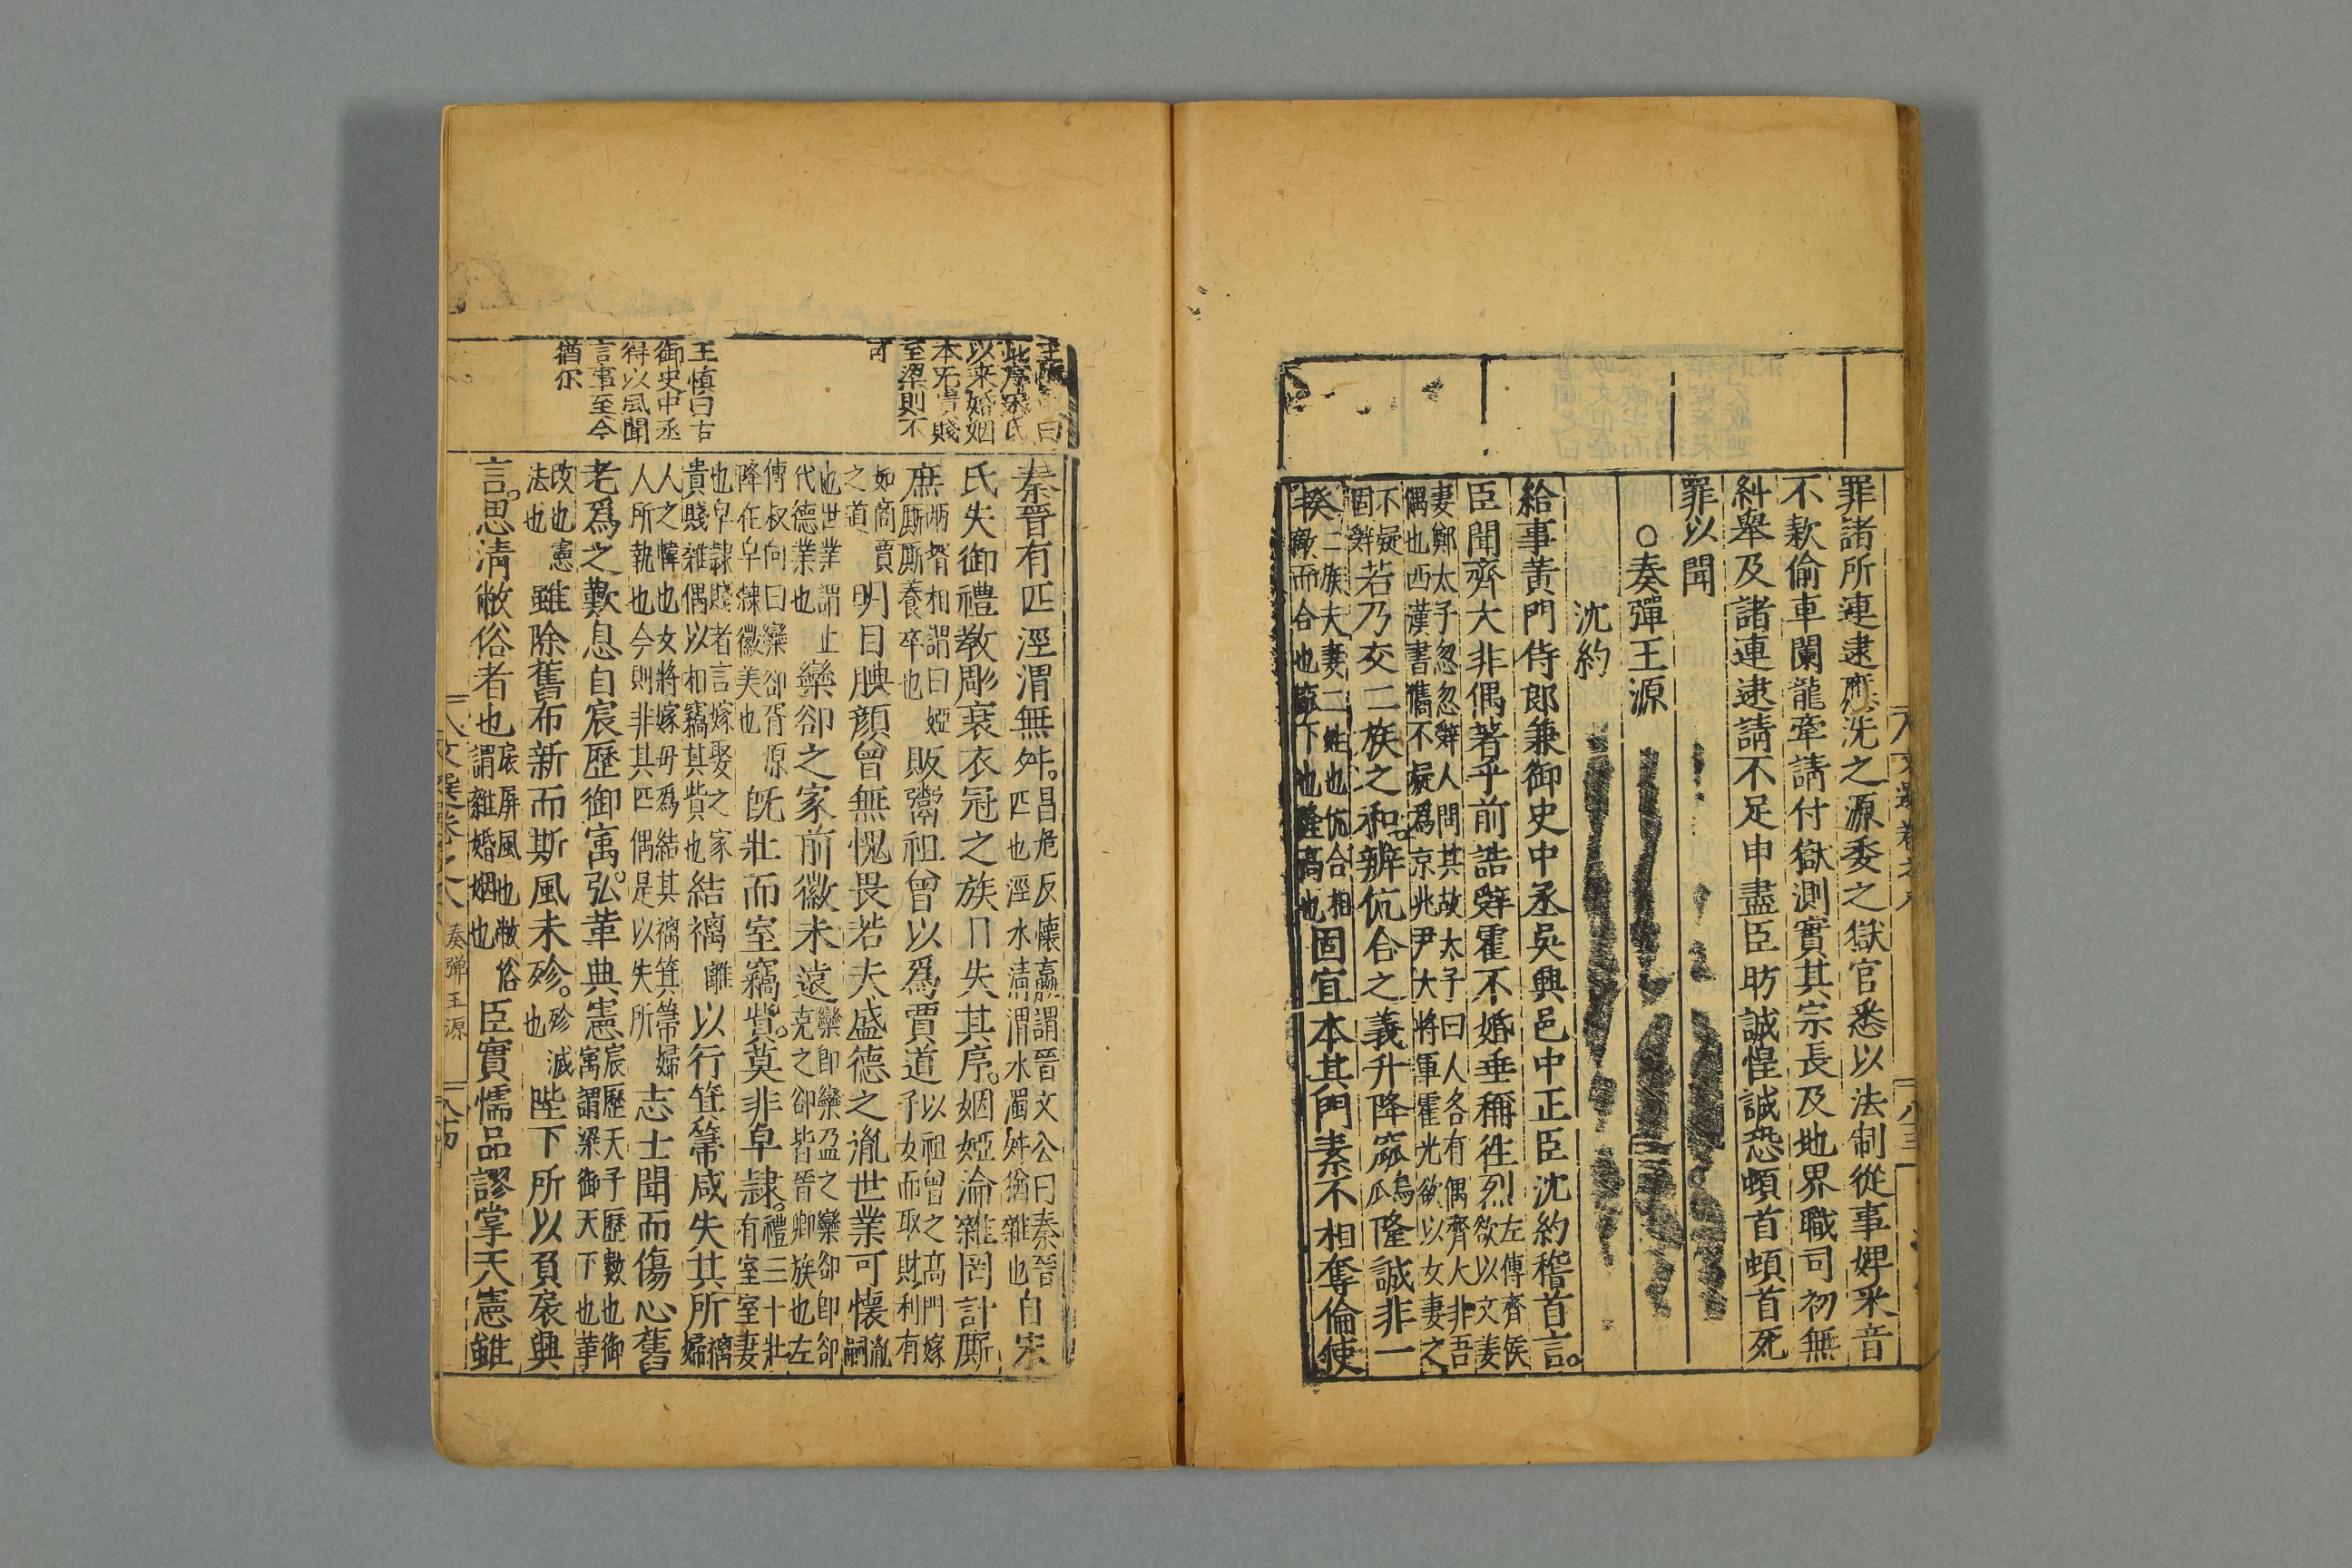 罪諸所連逮應洗之源委之獄官悉以法制從事婢采音
不款偷車闌龍牽請付獄測實其宗長及地界職司初無
糾舉及諸連逮請不足申盡臣昉誠惶誠恐頓首頓首死
罪以聞
○奏彈王源
沈約
給事黃門侍郎兼御史中丞吳興邑中正臣沈約稽首言。
臣聞齊大非偶著乎前誥辭霍不婚垂稱徃烈左傳齊侯欲以文姜
妻鄭太子忽忽辭人問其故太子曰人各有偶齊大非吾
偶也西漢書雋不疑爲京兆尹大將軍霍光欲以女妻之
不疑固辭若乃交二族之和。辨伉合之義升降窳烏瓜隆誠非一
揆二族夫妻二姓也伉合相敵而合也窳下也隆高也固宜本其門素不相奪倫使
秦晉有匹涇渭無舛。昌危反懷嬴謂晉文公曰秦晉匹也涇水清渭水濁舛猶雜也自宋
氏失御禮教彫衰衣冠之族日失其序。姻婭淪雜罔計厮
庶兩壻相謂曰婭厮厮養卒也販鬻祖曾以爲賈道以祖曾之高門嫁子女而取財利有
如商賈之道明目腆顔曾無愧畏若夫盛德之胤世業可懷胤嗣
也世業謂止代德業也欒郤之家前徽未遠欒卽欒盈之欒郤卽郤克之郤皆晉卿族也左
傳叔向曰欒郤胥原降在皁隸徽美也旣壯而室竊貲。莫非皁隸。禮三十壯有室室妻
也皁隸賤者言嫁娶之家貴賤雜偶以相竊其貲也結褵離以行箕箒咸失其所褵婦
人之幃也女將嫁母爲結其褵箕箒婦人所執也今則非其匹偶是以失所志士聞而傷心舊
老爲之歎息自宸歷御寓。弘革典憲宸歷天子歷數也御寓謂梁御天下也革
改也憲法也雖除舊布新而斯風未殄。殄滅也陛下所以負扆與
言。思清敝俗者也扆屏風也敝俗謂雜婚姻也臣實懦品謬掌天憲雖
此序宋氏
以来婚姻
本无貴賤
至梁則不
可
王慎曰古
御史中丞
得以風聞
言事至今
猶尔
文選卷之八 奏彈王源